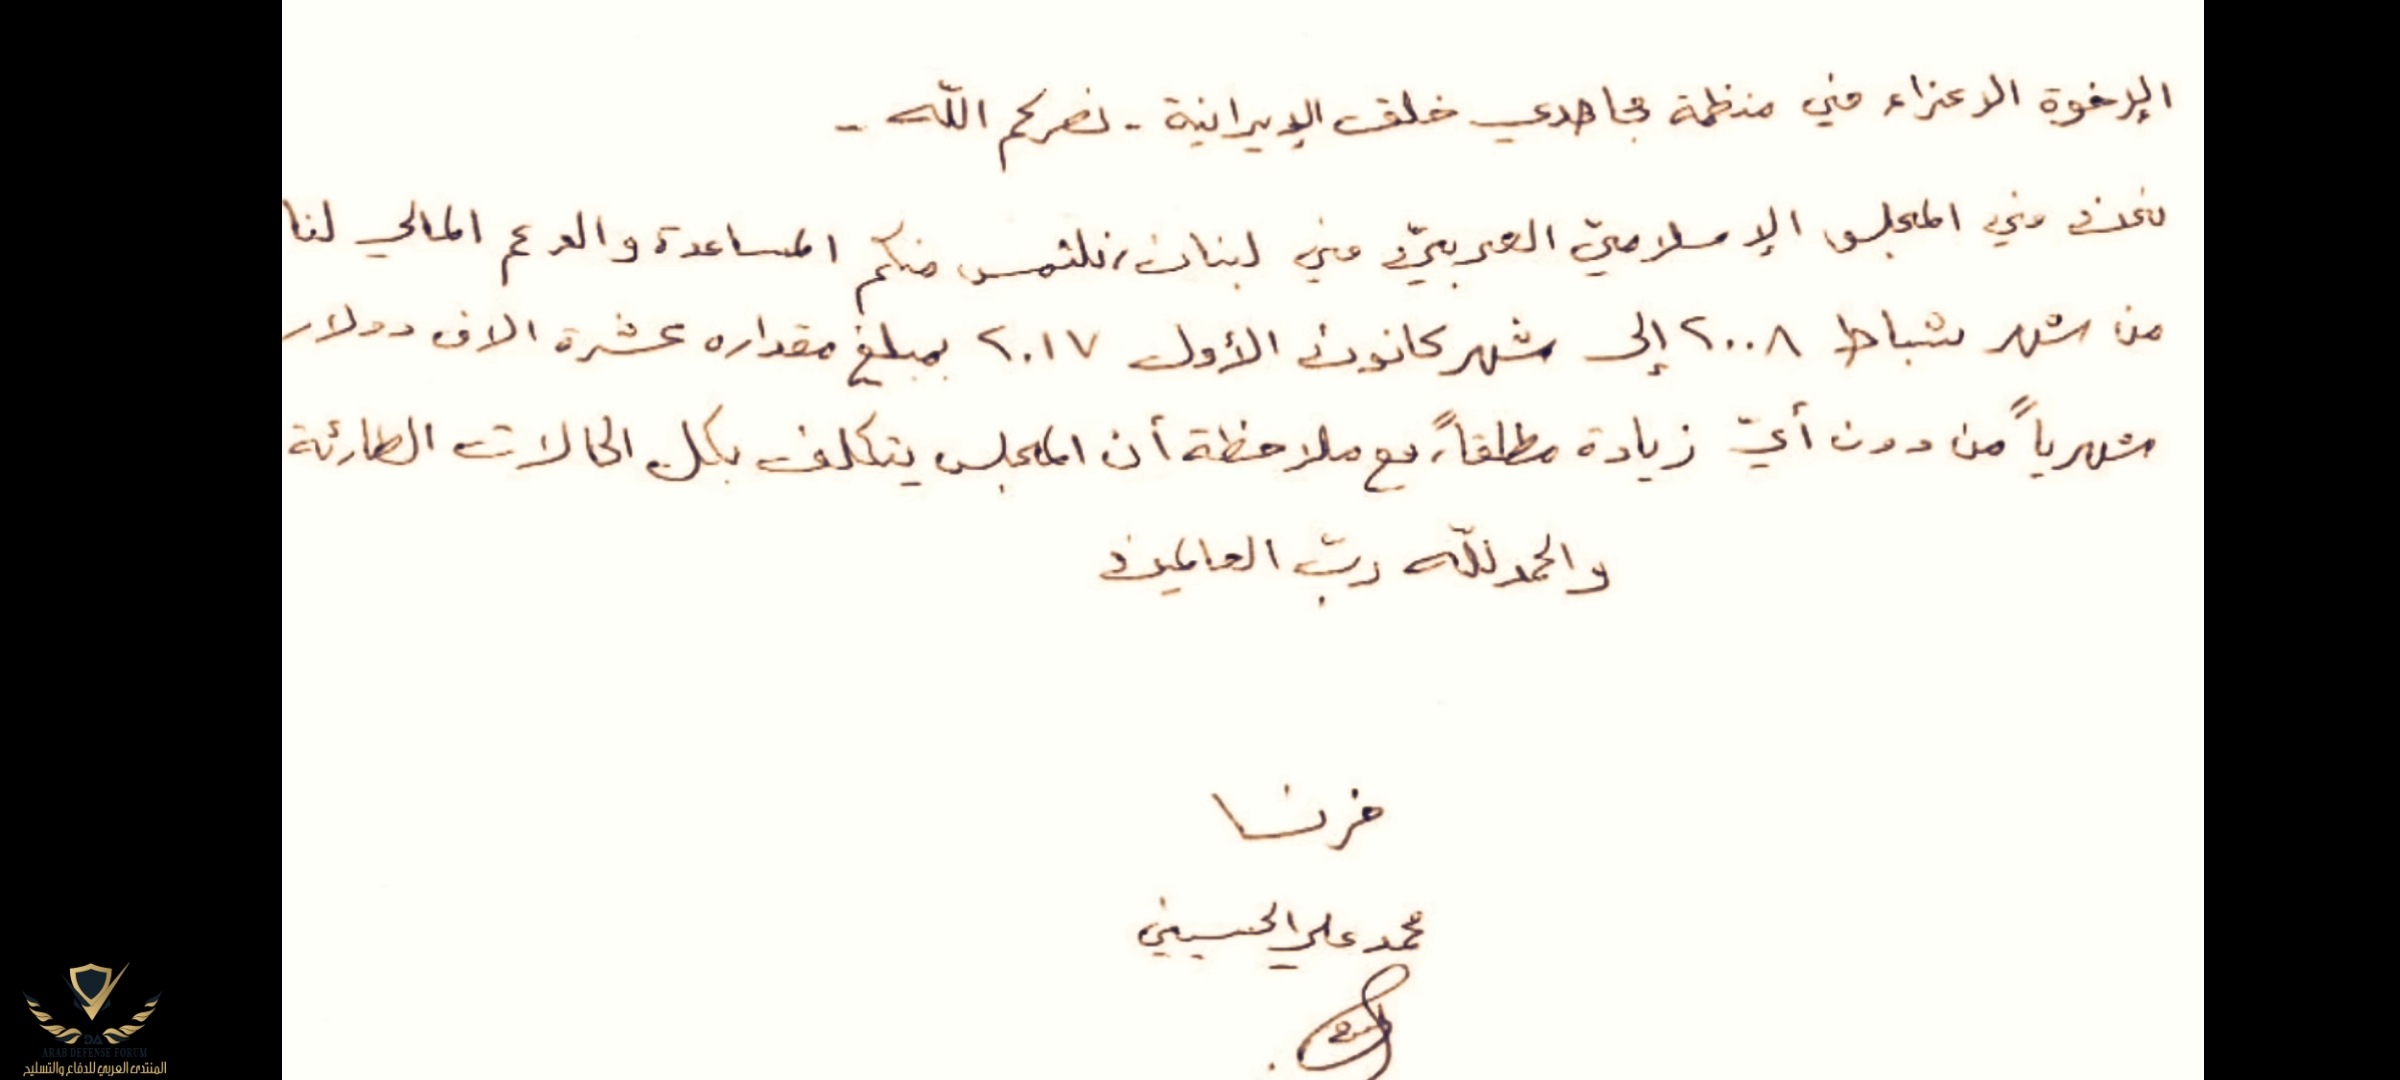 الإخوة الاعزاء في منظمة مجاهدي خلق الإيرانية - نصركم اللّه -
نحن في المجلس الإسلاميّ العربيّ في لبنان، نلتمس منكم المساعدة والدعم المالي لنا
من شهر شباط ٢٠٠٨ إلى شهر كانون الأول ٢٠١٧ بمبلغ مقداره عشرة الاف دولار
شهرياً من دون أيّ زيادة مطلقاً، مع ملاحظة أن المجلس يتكلف بكل الحالات الطارئة
والحمد للّه ربّ العالمين
فرنسا
محمد علي الحسيني
DA
ARAB DEFENSE FORUM
المنتدى العربي للدفاع والتسليح